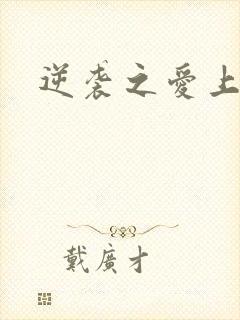 逆袭之愛上
戴廣才